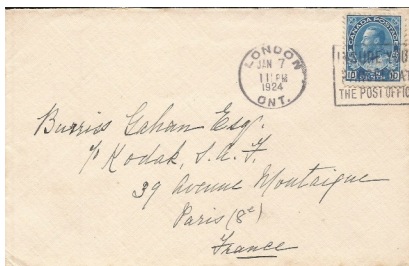 LONDON
JAN 7
11 PM
1924
ONT.
CANADA POSTAGE
10 10
THE POST OFFIC
Burriss Gahan Esq.
c/o Kodak, S.A.F.
39 Avenue Montaigne
Paris (8e)
France